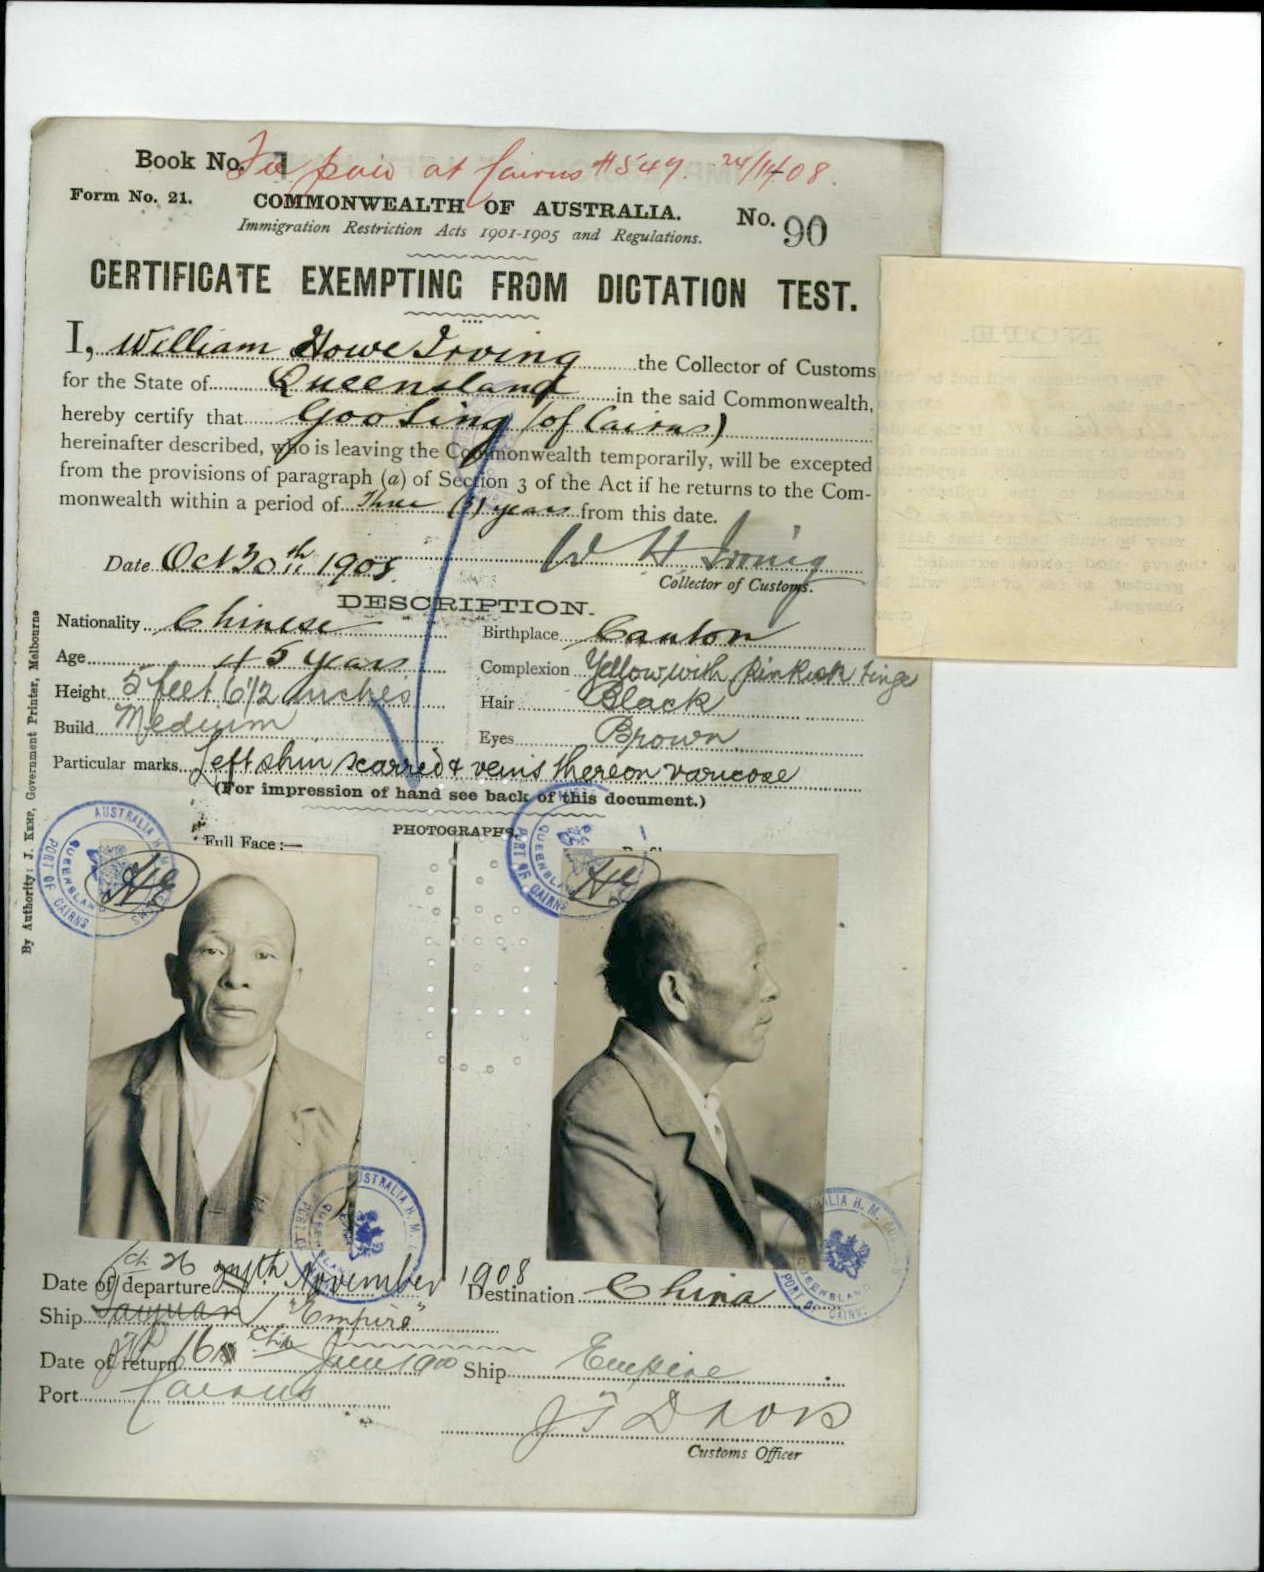 Book No. 1
Fee paid at Cairns #549. 24/11/08.
Form No. 21.
COMMONWEALTH OF AUSTRALIA.
No. 90
Immigration Restriction Acts 1901-1905 and Regulations.
CERTIFICATE EXEMPTING FROM DICTATION TEST.
I, William Howe Irving the Collector of Customs
for the State of Queensland in the said Commonwealth,
hereby certify that Goo Sing (of Cairns)
hereinafter described, who is leaving the Commonwealth temporarily, will be excepted
from the provisions of paragraph (a) of Section 3 of the Act if he returns to the Com-
monwealth within a period of Three (3) years from this date.
Date Oct 30th 1908.
W H Irving
Collector of Customs.
DESCRIPTION.
Nationality Chinese
Birthplace Canton
Age 45 years
Complexion Yellow with pinkish tinge
Height 5 feet 6 1/2 inches
Hair Black
Build Medium
Eyes Brown
Particular marks Left shin scarred & veins thereon varicose
(For impression of hand see back of this document.)
PHOTOGRAPHS.
Full Face :—
By Authority: J. Kemp, Government Printer, Melbourne
AUSTRALIA H. M.
QUEENSLAND
PORT OF CAIRNS
QUEENSLAND
PORT OF CAIRNS
AUSTRALIA H. M.
PORT OF
AUSTRALIA H. M.
QUEENSLAND
PORT OF CAIRNS
Date of departure 26 November 1908
Destination China
Ship Taiyuan "Empire"
Date of return 16 June
Ship Empire
Port Cairns
Customs Officer
NOTE.